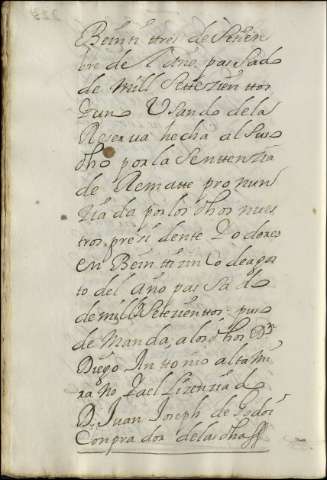 Beintti ttres de Settien
bre de el año passado
de mill Settezienttos
Y uno Usando dela
Reserva hecha al Sus
dho por la Senttenzia
de Rematte pronun
ziada por los dhos nues
tros presidente Y oydores
en Beintti zinco de agos
to del Año passado
de mill Settezienttos
demanda, a los dhos Dn
Diego Anttonio alttami
rano Y a el Lizenziado
D. Juan Joseph de
Conprador de la dha